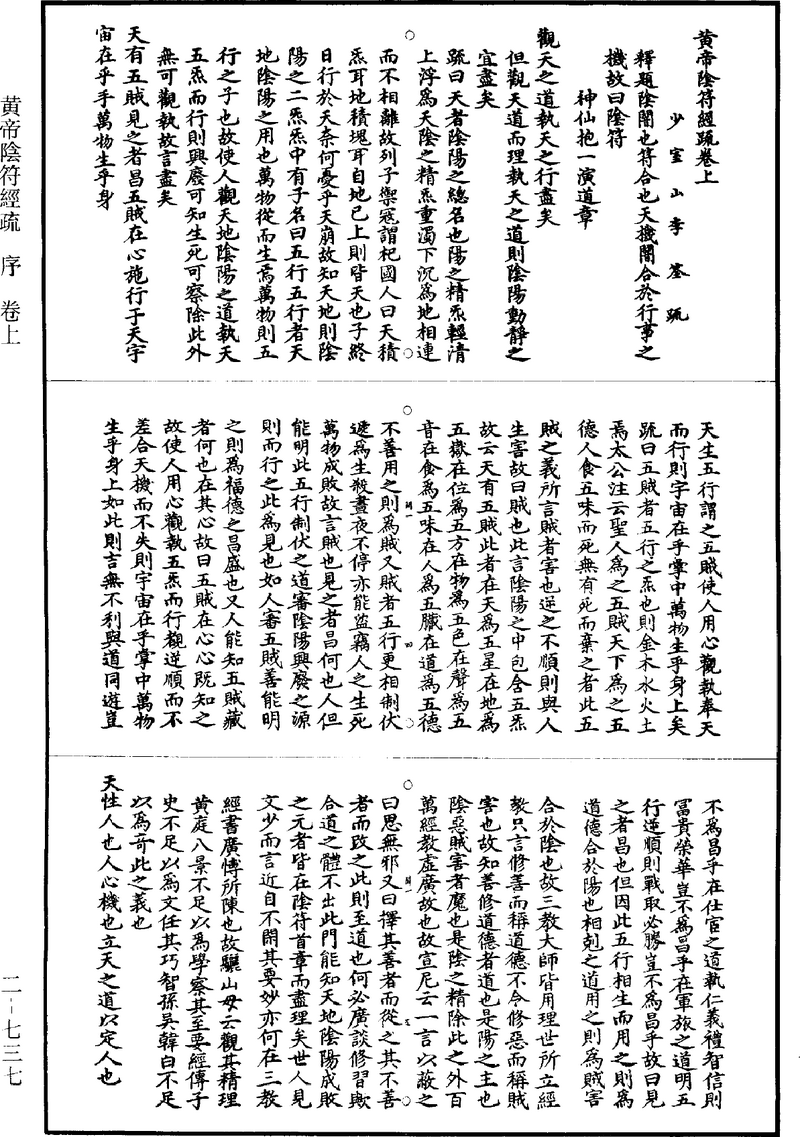 黃帝陰符經疏卷上
少室山李筌疏
釋題陰闇也符合也天機闇合於行事之
機故曰陰符
神仙抱一演道章
觀天之道執天之行盡矣
但觀天道而理執天之道則陰陽動靜之
宜盡矣
疏曰天者陰陽之總名也陽之精炁輕清
上浮為天陰之精炁重濁下沉為地相連
而不相離故列子禦寇謂杞國人曰天積
炁耳地積塊耳自地已上則皆天也子終
日行於天奈何憂乎天崩故知天地則陰
陽之二炁炁中有子名曰五行五行者天
地陰陽之用也萬物從而生焉萬物則五
行之子也故使人觀天地陰陽之道執天
五炁而行則興廢可知生死可察除此外
無可觀執故言盡矣
天有五賊見之者昌五賊在心施行于天宇
宙在乎手萬物生乎身
天生五行謂之五賊使人用心觀執奉天
而行則宇宙在乎掌中萬物生乎身上矣
疏曰五賊者五行之炁也則金木水火土
焉太公注云聖人為之五賊天下為之五
德人食五味而死無有死而棄之者此五
賊之義所言賊者害也逆之不順則與人
生害故曰賊也此言陰陽之中包含五炁
故云天有五賊此者在天為五星在地為
五嶽在位為五方在物為五色在聲為五
音在食為五味在人為五臟在道為五德
不善用之則為賊又賊者五行更相制伏
遞為生殺晝夜不停亦能盜竊人之生死
萬物成敗故言賊也見之者昌何也人但
能明此五行制伏之道審陰陽興廢之源
則而行之此為見也如人審五賊善能明
之則為福德之昌盛也又人能知五賊藏
者何也在其心故曰五賊在心心既知之
故使人用心觀執五炁而行覩逆順而不
差合天機而不失則宇宙在乎掌中萬物
生乎身上如此則吉無不利與道同遊豈
不為昌乎在仕宦之道執仁義禮智信則
富貴榮華豈不為昌乎在軍旅之道明五
行逆順則戰取必勝豈不為昌乎故曰見
之者昌也但因此五行相生而用之則為
道德合於陽也相剋之道用之則為賊害
合於陰也故三教大師皆用理世所立經
教只言修善而稱道德不令修惡而稱賊
害也故知善修道德者道也是陽之主也
陰惡賊害者魔也是陰之精除此之外百
萬經教虛廣故也故宣尼云一言以蔽之
曰思無邪又曰擇其善者而從之其不善
者而改之此則至道也何必廣談修習歟
合道之體不出此門能知天地陰陽成敗
之元者皆在陰符首章而盡理矣世人見
文少而言近自不開其要妙亦何在三教
經書廣愽所陳也故驪山母云觀其精理
黃庭八景不足以為學察其至要經傳子
史不足以為文任其巧智孫吳韓白不足
以為奇此之義也
天性人也人心機也立天之道以定人也
黃帝陰符經疏　序　卷上
二-七三七